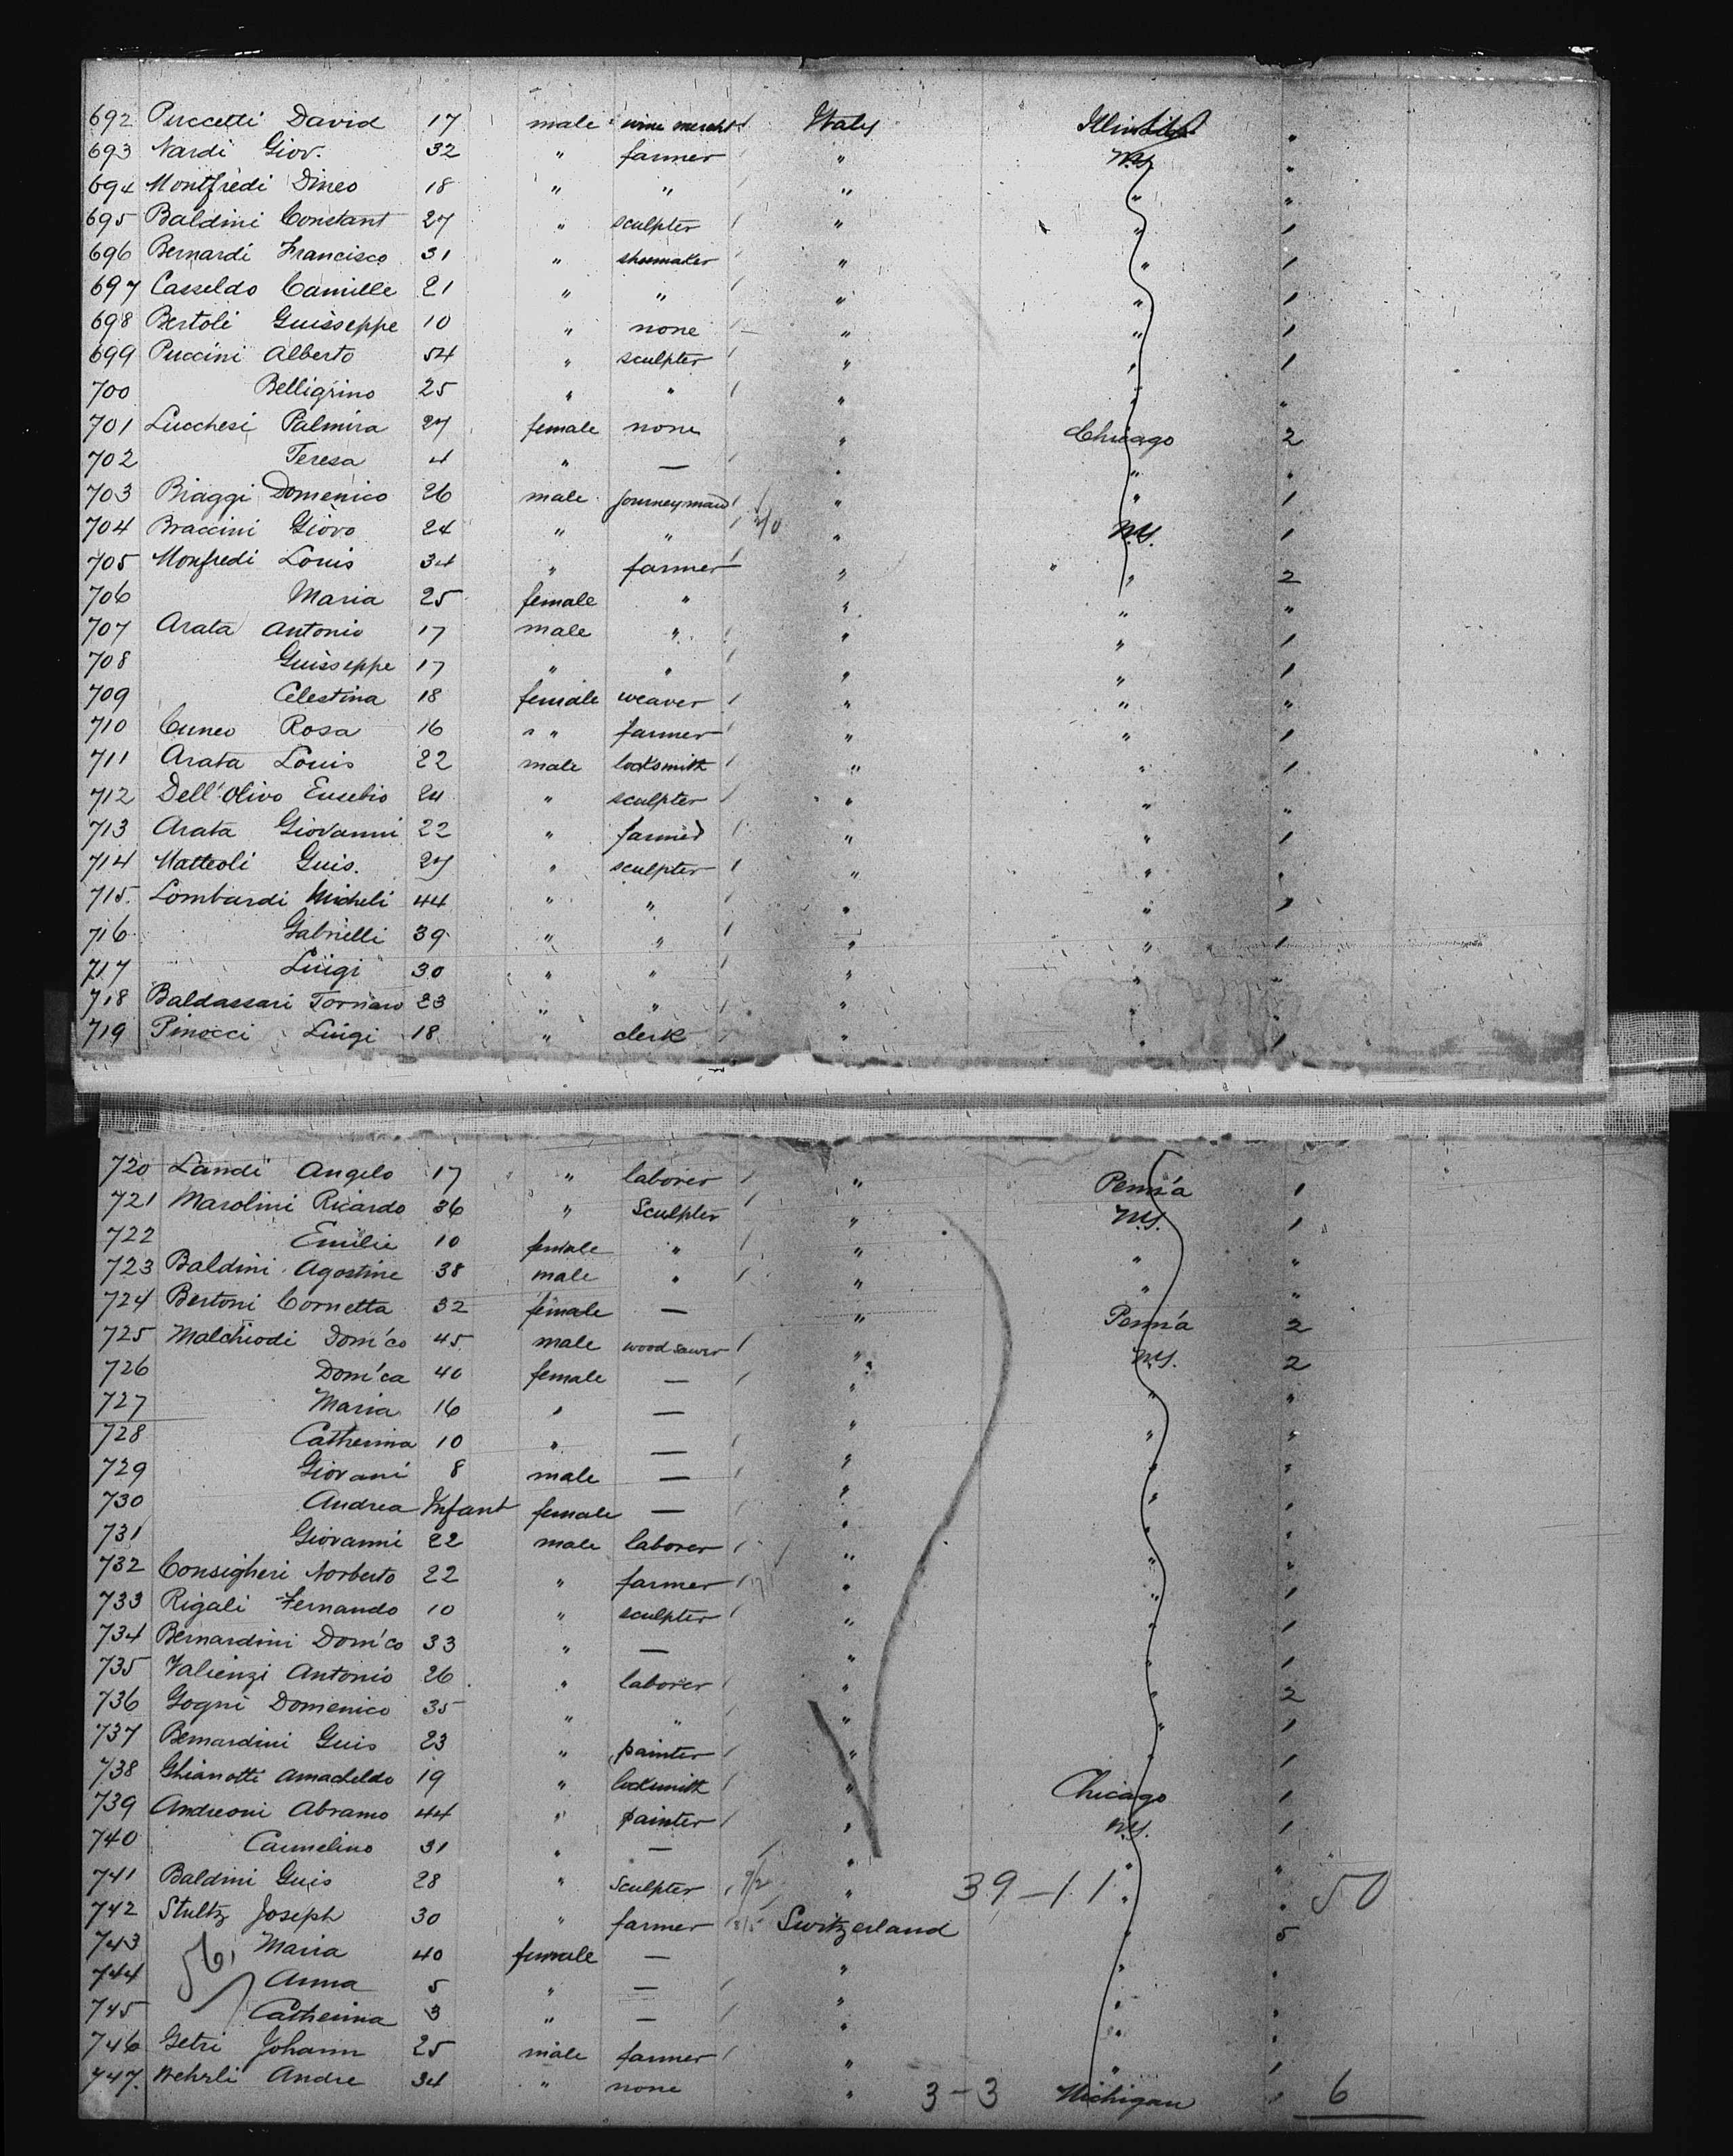 692 Puccetti David 17 male wine mercht Italy
693 Nardi Giov. 32 " farmer " N.Y. "
694 Montfredi Dineo 18 " " " " "
695 Baldini Constant 27 " sculpter " " 1
696 Bernardi Francisco 31 " shoemaker " " 1
697 Casseldo Camille 21 " " " " 1
698 Bertoli Guisseppe 10 " none " " 1
699 Puccini Alberto 54 " sculpter " " 1
700 Belligrino 25 " " " " "
701 Lucchesi Palmira 27 female none " Chicago 2
702 Teresa 4 " — " " "
703 Biaggi Domenico 26 male journeyman " " 1
704 Braccini Giovo 24 " " " N.Y. 1
705 Monfredi Louis 34 " farmer " " 2
706 Maria 25 female " " " "
707 Arata Antonio 17 male " " " 1
708 Guisseppe 17 " " " " 1
709 Celestina 18 female weaver " " "
710 Cuneo Rosa 16 " " farmer " " 1
711 Arata Louis 22 male locksmith " " 1
712 Dell'Olivo Eusebio 24 " sculpter " " "
713 Arata Giovanni 22 " farmer " " 1
714 Matteoli Guis. 27 " sculpter " " "
715. Lombardi Micheli 44 " " " " 1
716 Gabrielli 39 " " " " 1
717 Luigi 30 " " " " "
718 Baldassari Tornaro 23 " " " " "
719 Pinocci Luigi 18 " clerk " " 1
720 Landi Angelo 17 " laborer " Penn'a 1
721 Marolini Ricardo 36 " Sculpter " N.Y. 1
722 Emilie 10 female " " " "
723 Baldini Agostine 38 male " " " "
724 Bertoni Cornetta 32 female — " Penn'a 2
725 Malchiodi Dom'co 45 male wood sawer " N.Y. 2
726 Dom'ca 40 female — " " "
727 Maria 16 " — " " "
728 Catherina 10 " — " " "
729 Giovani 8 male — " " "
730 Andrea Infant female — " " "
731 Giovanni 22 male laborer " " "
732 Consigheri Norberto 22 " farmer " " 1
733 Rigali Fernando 10 " sculpter " " 1
734 Bernardini Dom'co 33 " — " " 1
735 Valienzi Antonio 26 " laborer " " 2
736 Gogni Domenico 35 " " " " 1
737 Bernardini Guis 23 " painter " " 1
738 Ghianotti Amacheldo 19 " locksmith " Chicago 1
739 Andreoni Abramo 44 " painter " N.Y. 1
740 Carmelino 31 " — " " "
741 Baldini Guis 28 " Sculpter " 39-11 " " 50
742 Stultz Joseph 30 " farmer Switzerland " 5
743 Maria 40 female — " " "
744 Anna 5 " — " " "
745 Catherina 3 " — " " "
746 Getri Johann 25 male farmer " " 1
747. Wehrli Andre 34 " none " 3-3 Michigan 1 6